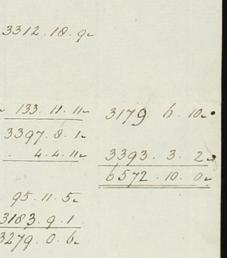 3312.18.9
133.11.11
3397.8.1
4.4.11
95.11.5
3183.9.1
3279.0.6
3179 6.10
3393.3.2
6572.10.0